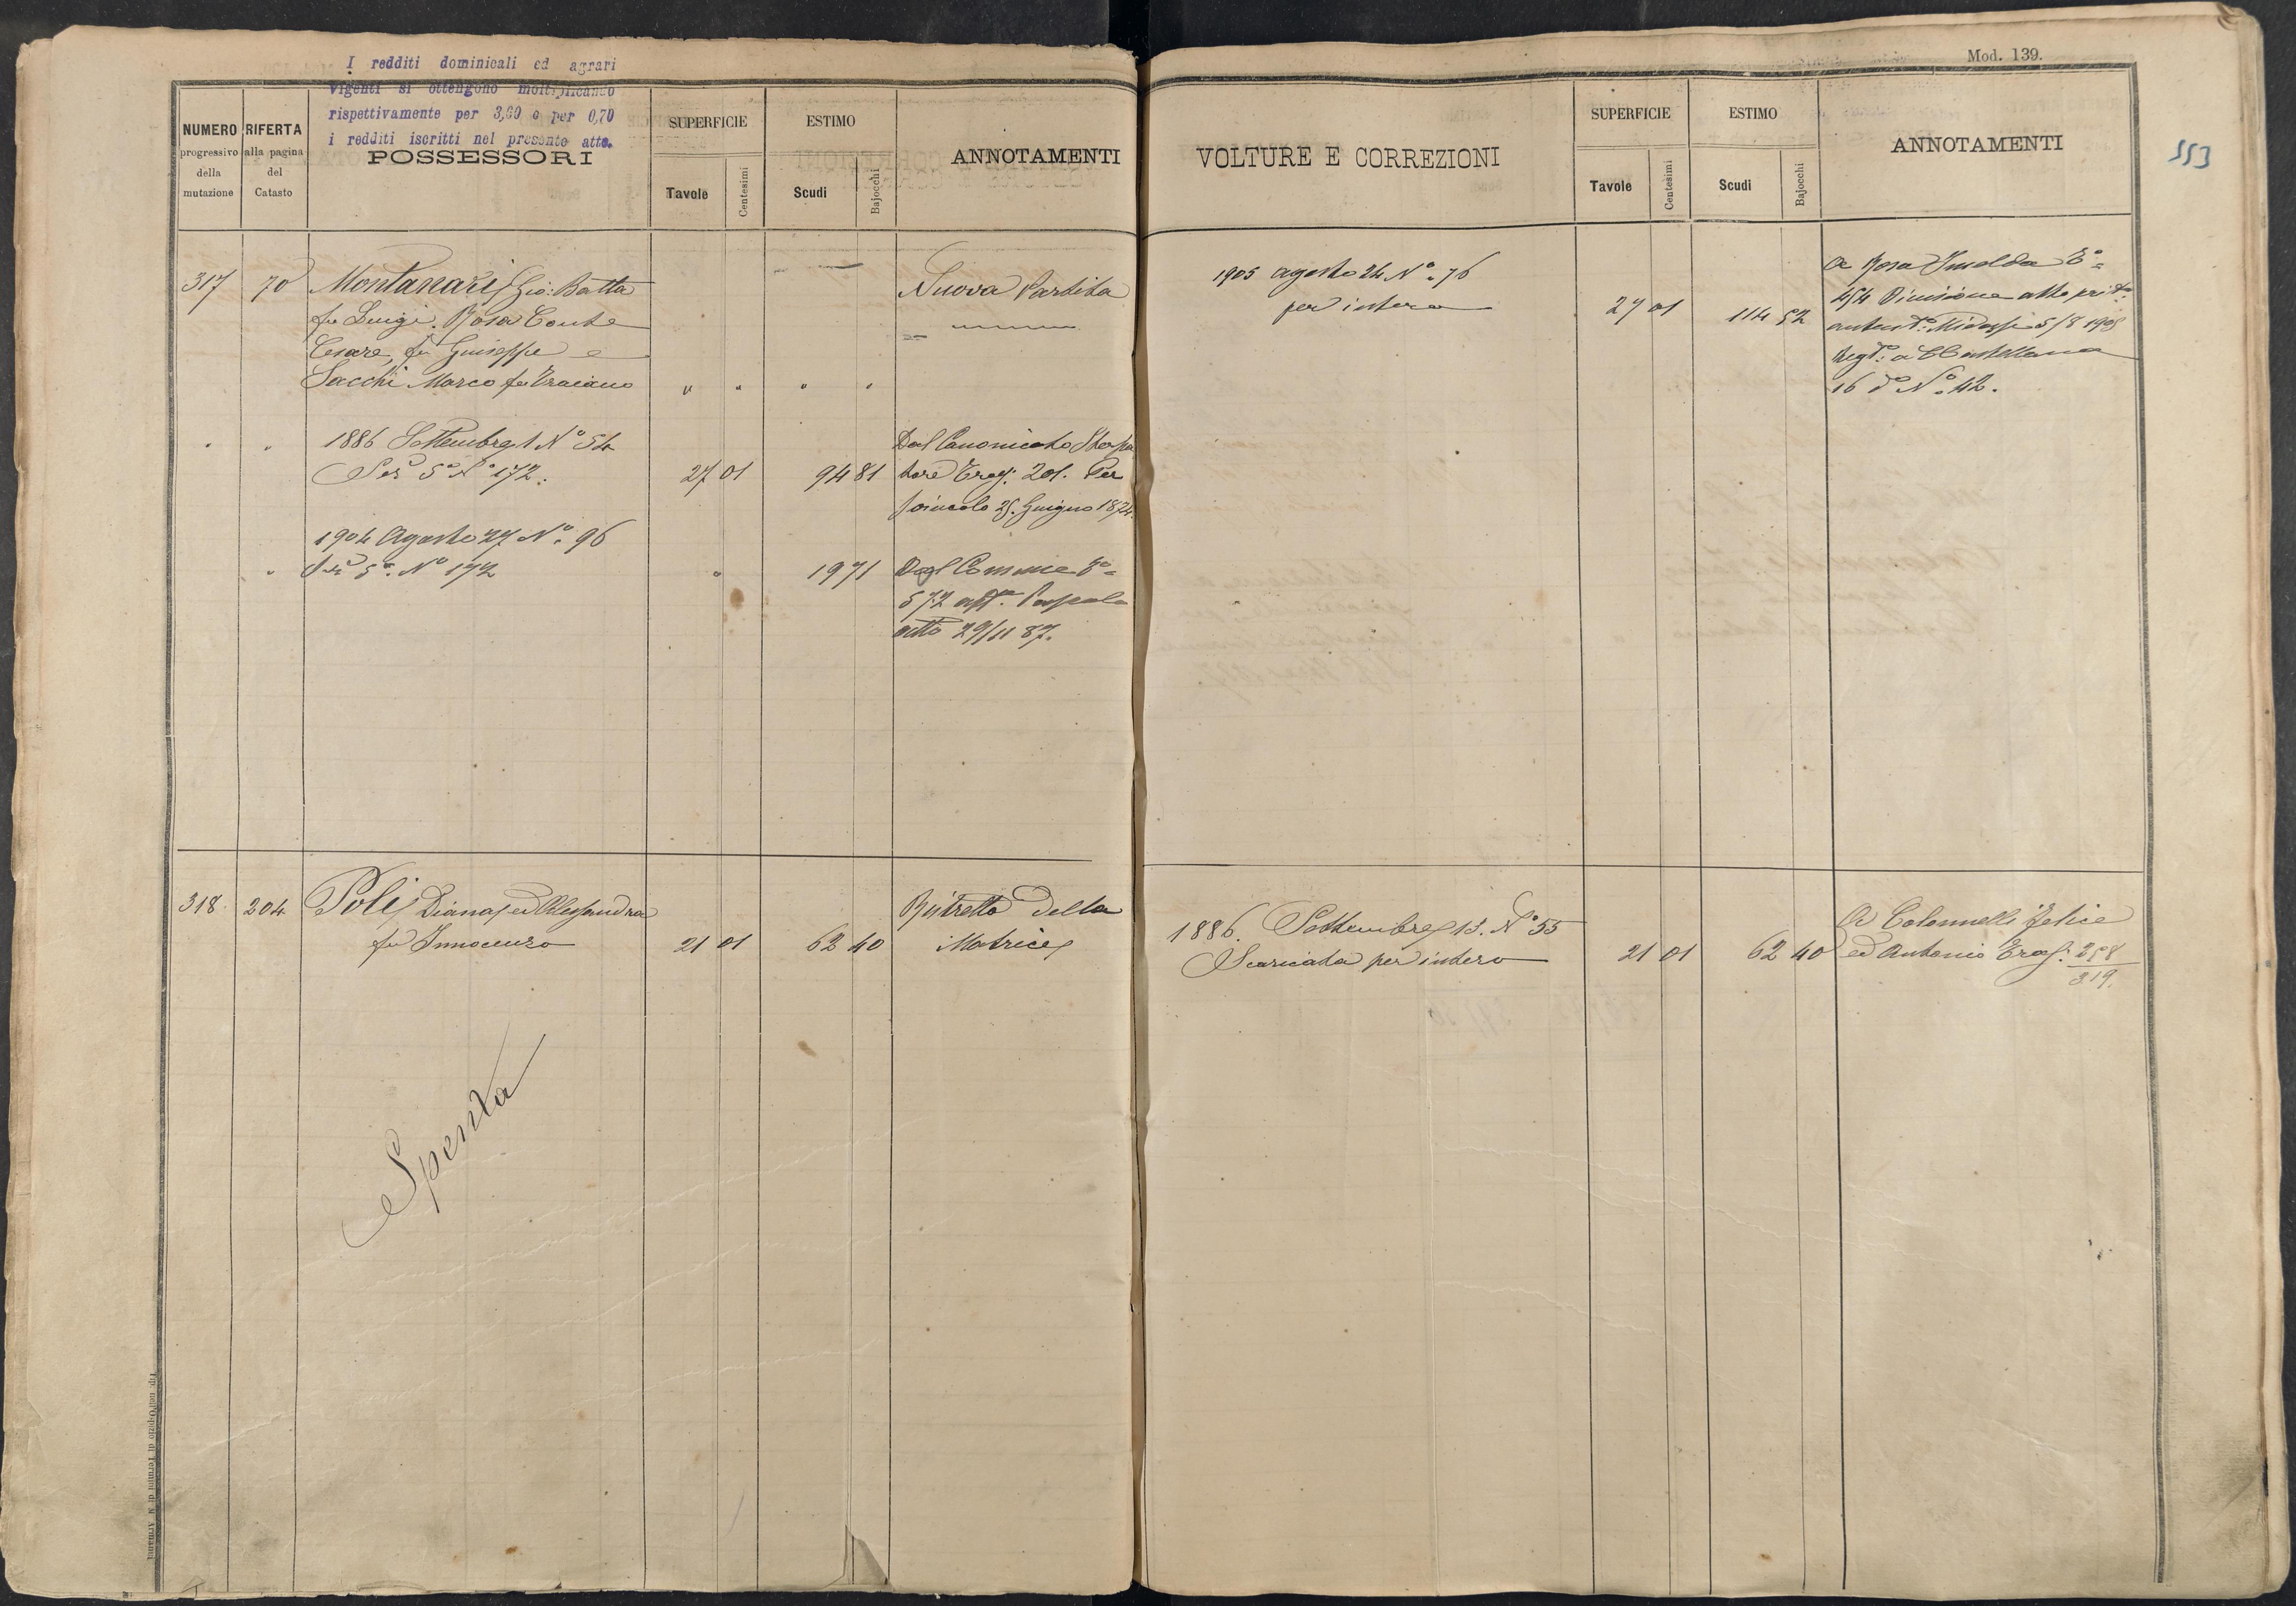 I redditi dominicali ed agrari
vigenti si ottengono moltiplicando
rispettivamente per 3,60 e per 0,70
i redditi iscritti nel presente atto.
NUMERO
progressivo
della
mutazione
RIFERTA
alla pagina
del
Catasto
POSSESSORI
SUPERFICIE
Tavole
Centesimi
ESTIMO
Scudi
Bajocchi
ANNOTAMENTI
317 70 Montanari Gio: Batta
fu Luigi. Rosa Conte
Cesare, fu Giuseppe e
Sacchi Marco fu Traiano " " " "
Nuova Partita
" " 1886 Settembre 1 N° 54
Ser 5ª N° 172. 27 01 94 81
Dal Canonicato
Treg: 201. Per
25. Giugno 1874.
1904 Agosto 27 N° 96
" N° 172 " 19 71
Dal Comune
572
atto 29/11 87.
318 204 Poli Diana ed Alessandra
fu Innocenzo 21 01 62 40
Ristretto della
Matrice
Spenta
Mod. 139.
VOLTURE E CORREZIONI
SUPERFICIE
Tavole
Centesimi
ESTIMO
Scudi
Bajocchi
ANNOTAMENTI
553
1905 agosto 24 N° 76
per intero 27 01 114 52
A Rosa Imelda
454 Divisione atto
5/8 1905
Regto: a
16 do N° 42.
1886. Settembre 13. N° 55
Scaricata per intero 21 01 62 40
A Colonnelli Felice
ed Antonio
319.